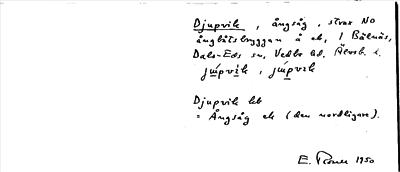 Djupvik, ångsåg, strax NO
ångbåtsbryggan å ek, 1 Bälnäs,
Dals-Eds sn, Vedbo hd, Älvsb. l.
jupvik, jupvik
Djupvik lht
= Ångsåg ek (den nordligare).
E. 1950